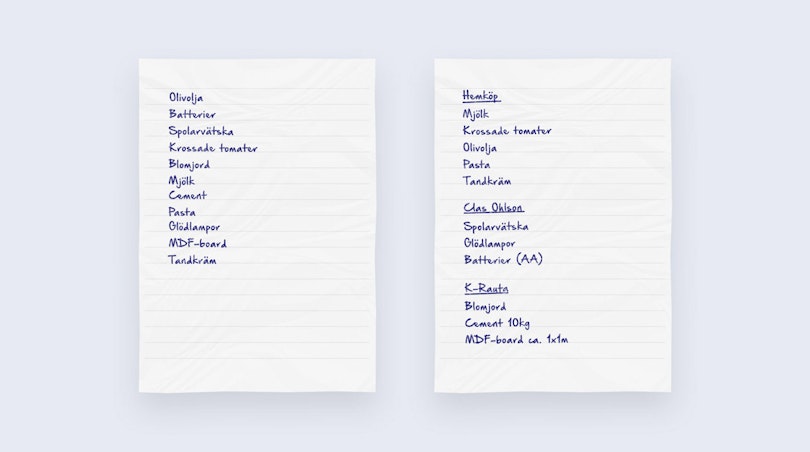 Olivolja
Batterier
Spolarvätska
Krossade tomater
Blomjord
Mjölk
Cement
Pasta
Glödlampor
MDF-board
Tandkräm
Hemköp
Mjölk
Krossade tomater
Olivolja
Pasta
Tandkräm
Clas Ohlson
Spolarvätska
Glödlampor
Batterier (AA)
K-Rauta
Blomjord
Cement 10kg
MDF-board ca. 1x1m